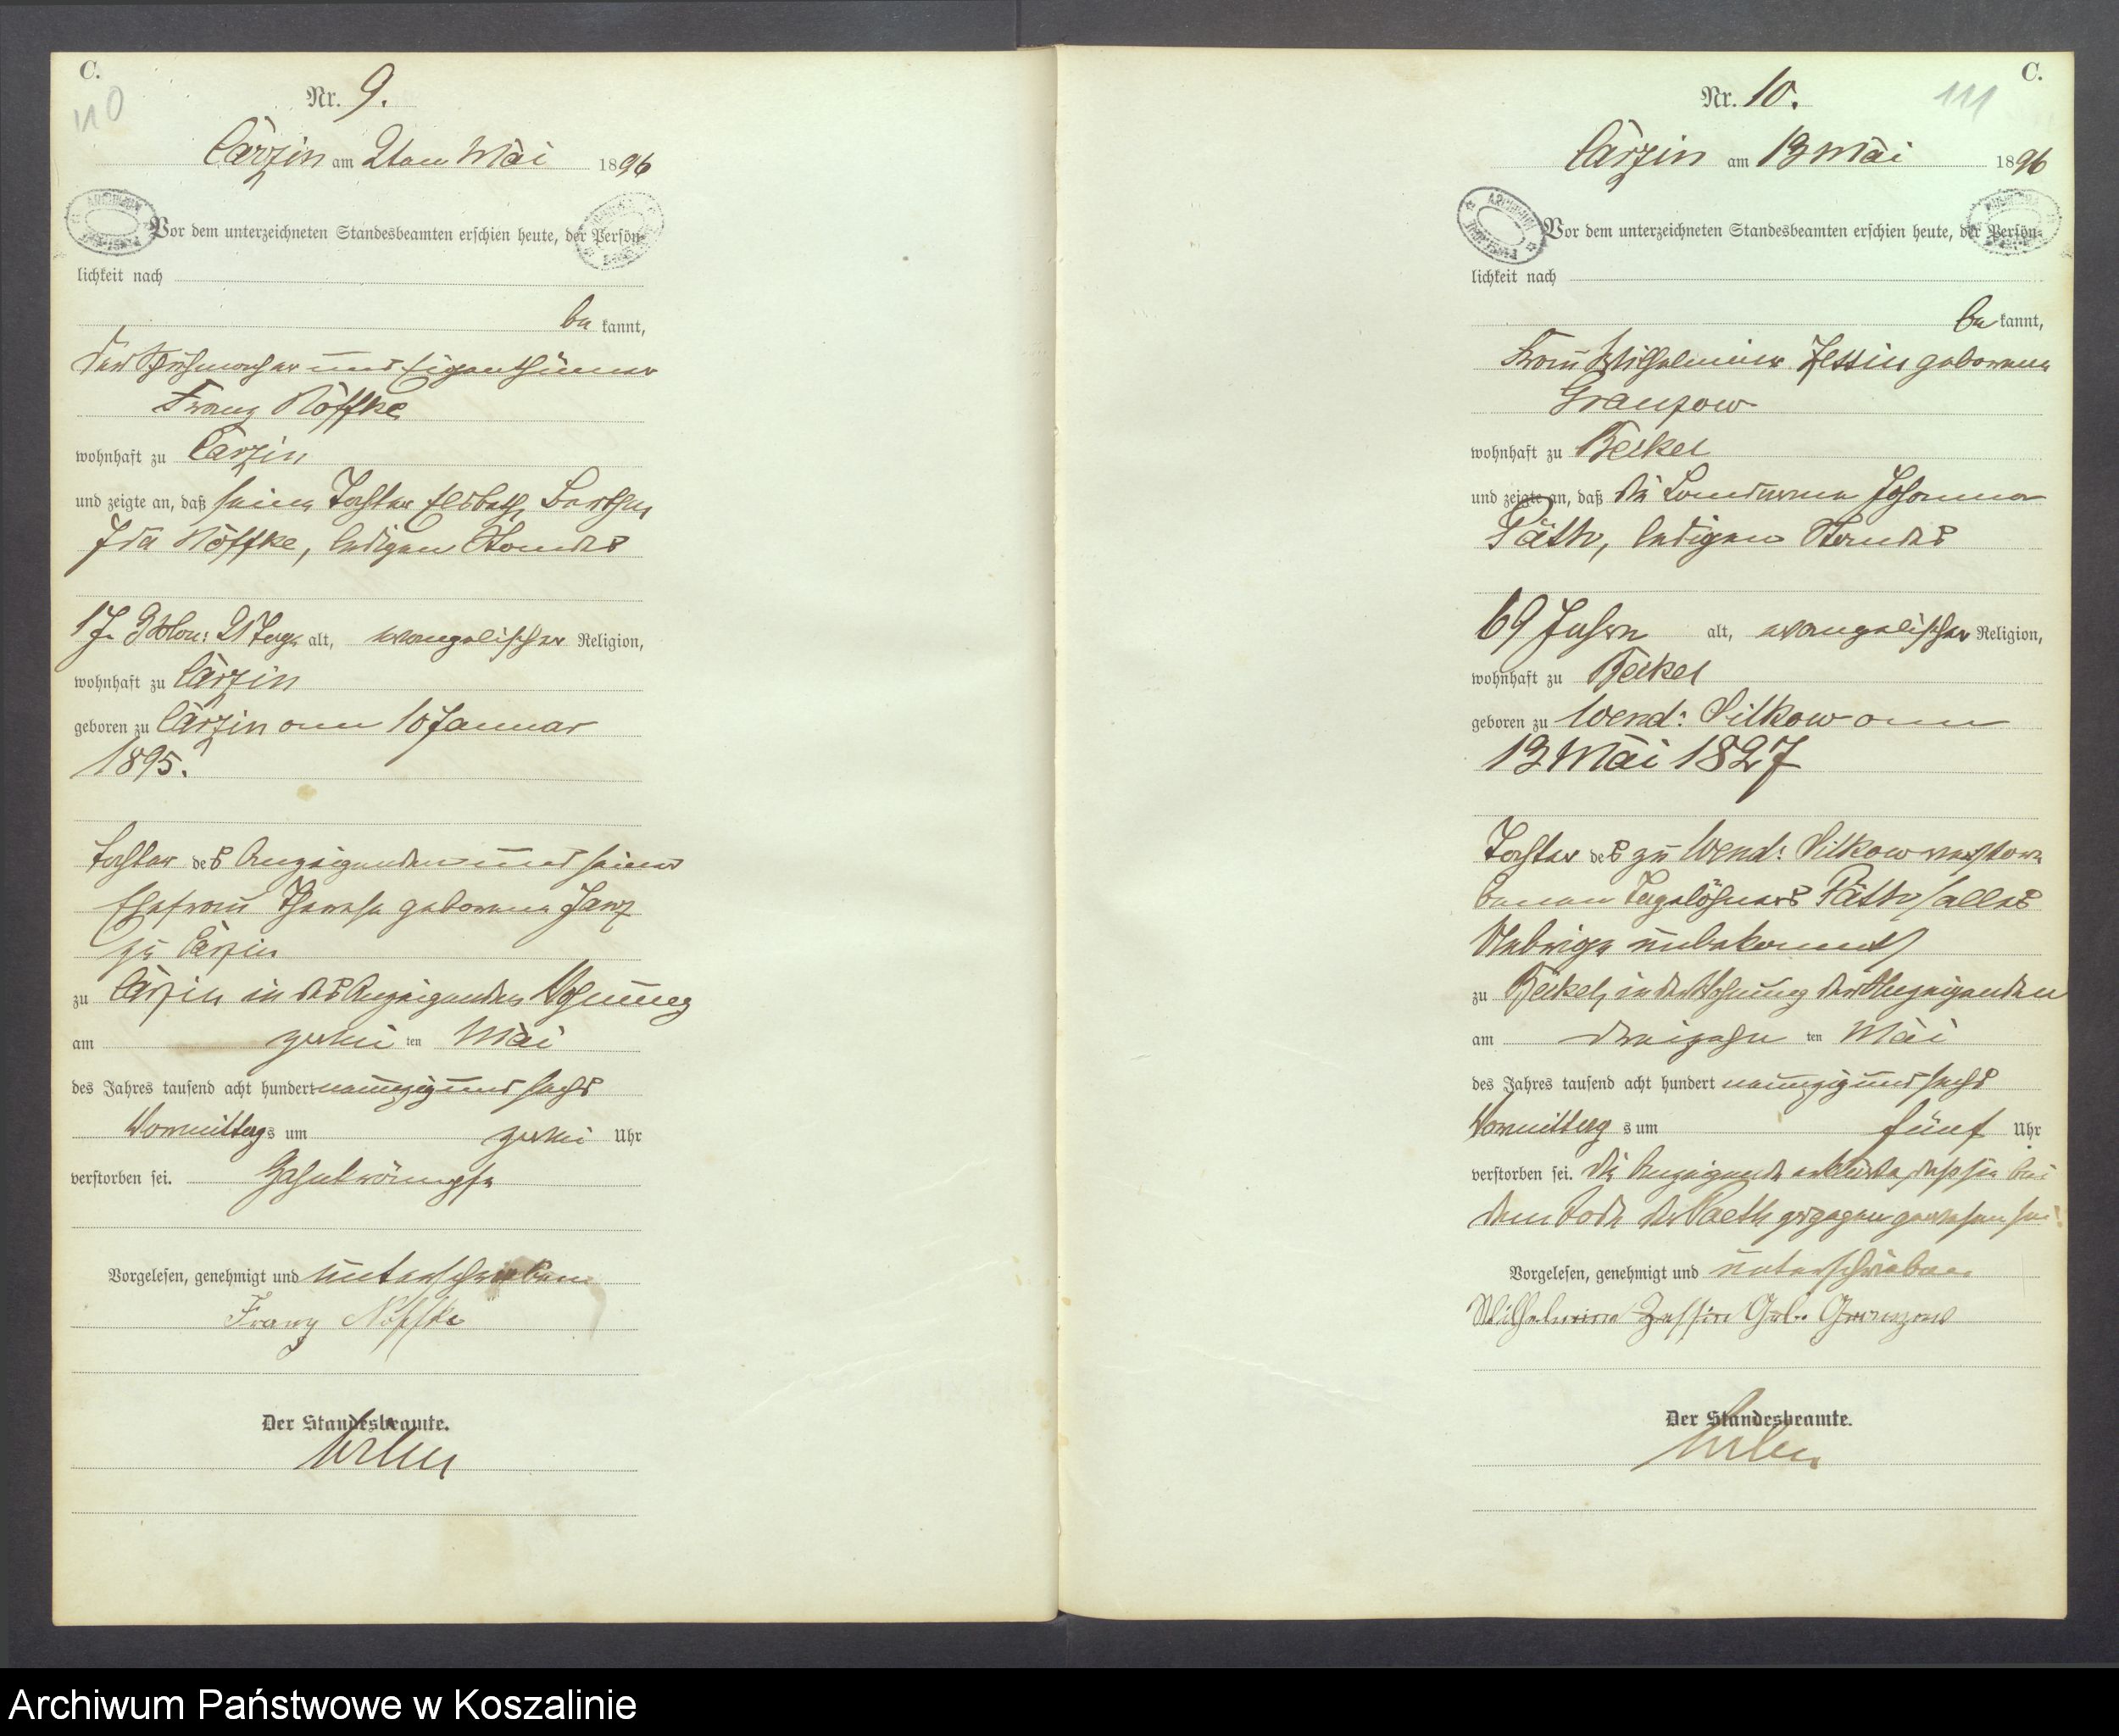 C.
110
Nr. 9.
Carzin am 2ten Mai 1896
Vor dem unterzeichneten Standesbeamten erschien heute, der Persön-
lichkeit nach
be kannt,
der Schuhmacher und Eigenthümer
Franz Nöffke
wohnhaft zu Carzin
und zeigte an, daß seine Tochter Elsbeth Bertha
Ida Nöffke, ledigen Standes
1 J. 3 Mon: 21 Tage alt, evangelischer Religion,
wohnhaft zu Carzin
geboren zu Carzin am 10 Januar
1895.
Tochter des Anzeigenden und seiner
Ehefrau Therese geborene Janz
zu Carzin
zu Carzin in des Anzeigenden Wohnung
am zwei ten Mai
des Jahres tausend acht hundert neunzig und sechs
Vormittags um zwei Uhr
verstorben sei. Zahnkrämpfe
Vorgelesen, genehmigt und unterschrieben
Franz Nöffke
Der Standesbeamte.
C.
111
Nr. 10.
Carzin am 13 Mai 1896
Vor dem unterzeichneten Standesbeamten erschien heute, der Persön-
lichkeit nach
be kannt,
Frau Wilhelmine Zessin geborene
Granzow
wohnhaft zu Beckel
und zeigte an, daß die Landarme Johanna
Päth, ledigen Standes
69 Jahre alt, evangelischer Religion,
wohnhaft zu Beckel
geboren zu Wend: Silkow am
13 Mai 1827
Tochter des zu Wend: Silkow verstor-
benen Tagelöhners Päth /alles
Uebrige unbekannt/
zu Beckel, in der Wohnung der Anzeigenden
am dreizehn ten Mai
des Jahres tausend acht hundert neunzig und sechs
Vormittag s um fünf Uhr
verstorben sei. Die Anzeigende erklärte, daß sie bei
dem Tode der Paeth zugegen gewesen sei.
Vorgelesen, genehmigt und unterschrieben
Wilhelmine Zessin Geb. Granzow
Der Standesbeamte.
Archiwum Państwowe w Koszalinie